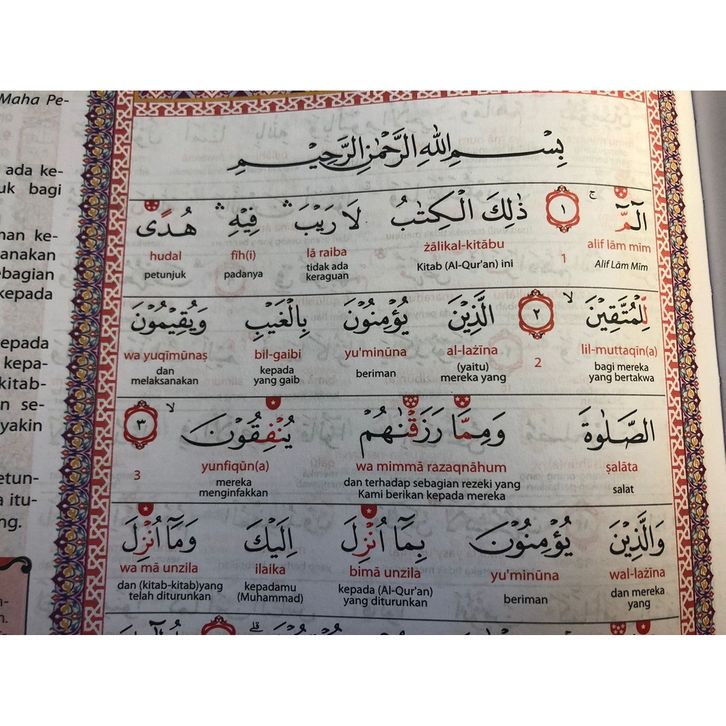 Maha Pe-
ada ke-
uk bagi
anakan
ebagian
kepada
epada
kepa-
kitab-
n se-
yakin
etun-
a itu-
ng.
بِسْمِ اللّٰهِ الرَّحْمٰنِ الرَّحِيْمِ
الۤمّۤ ۚ ١ ذٰلِكَ الْكِتٰبُ لَا رَيْبَ ۛ فِيْهِ ۛ هُدًى
alif lām mīm 1 żālikal-kitābu lā raiba fīh(i) hudal
Alif Lām Mīm Kitab (Al-Qur'an) ini tidak ada keraguan padanya petunjuk
لِّلْمُتَّقِيْنَ ۙ ٢ الَّذِيْنَ يُؤْمِنُوْنَ بِالْغَيْبِ وَيُقِيْمُوْنَ
lil-muttaqīn(a) 2 al-lażīna yu'minūna bil-gaibi wa yuqīmūnaṣ
bagi mereka yang bertakwa (yaitu) mereka yang beriman kepada yang gaib dan melaksanakan
الصَّلٰوةَ وَمِمَّا رَزَقْنٰهُمْ يُنْفِقُوْنَ ۙ ٣
ṣalāta wa mimmā razaqnāhum yunfiqūn(a) 3
salat dan terhadap sebagian rezeki yang Kami berikan kepada mereka mereka menginfakkan
وَالَّذِيْنَ يُؤْمِنُوْنَ بِمَآ اُنْزِلَ اِلَيْكَ وَمَآ اُنْزِلَ
wal-lażīna yu'minūna bimā unzila ilaika wa mā unzila
dan mereka yang beriman kepada (Al-Qur'an) yang diturunkan kepadamu (Muhammad) dan (kitab-kitab)yang telah diturunkan